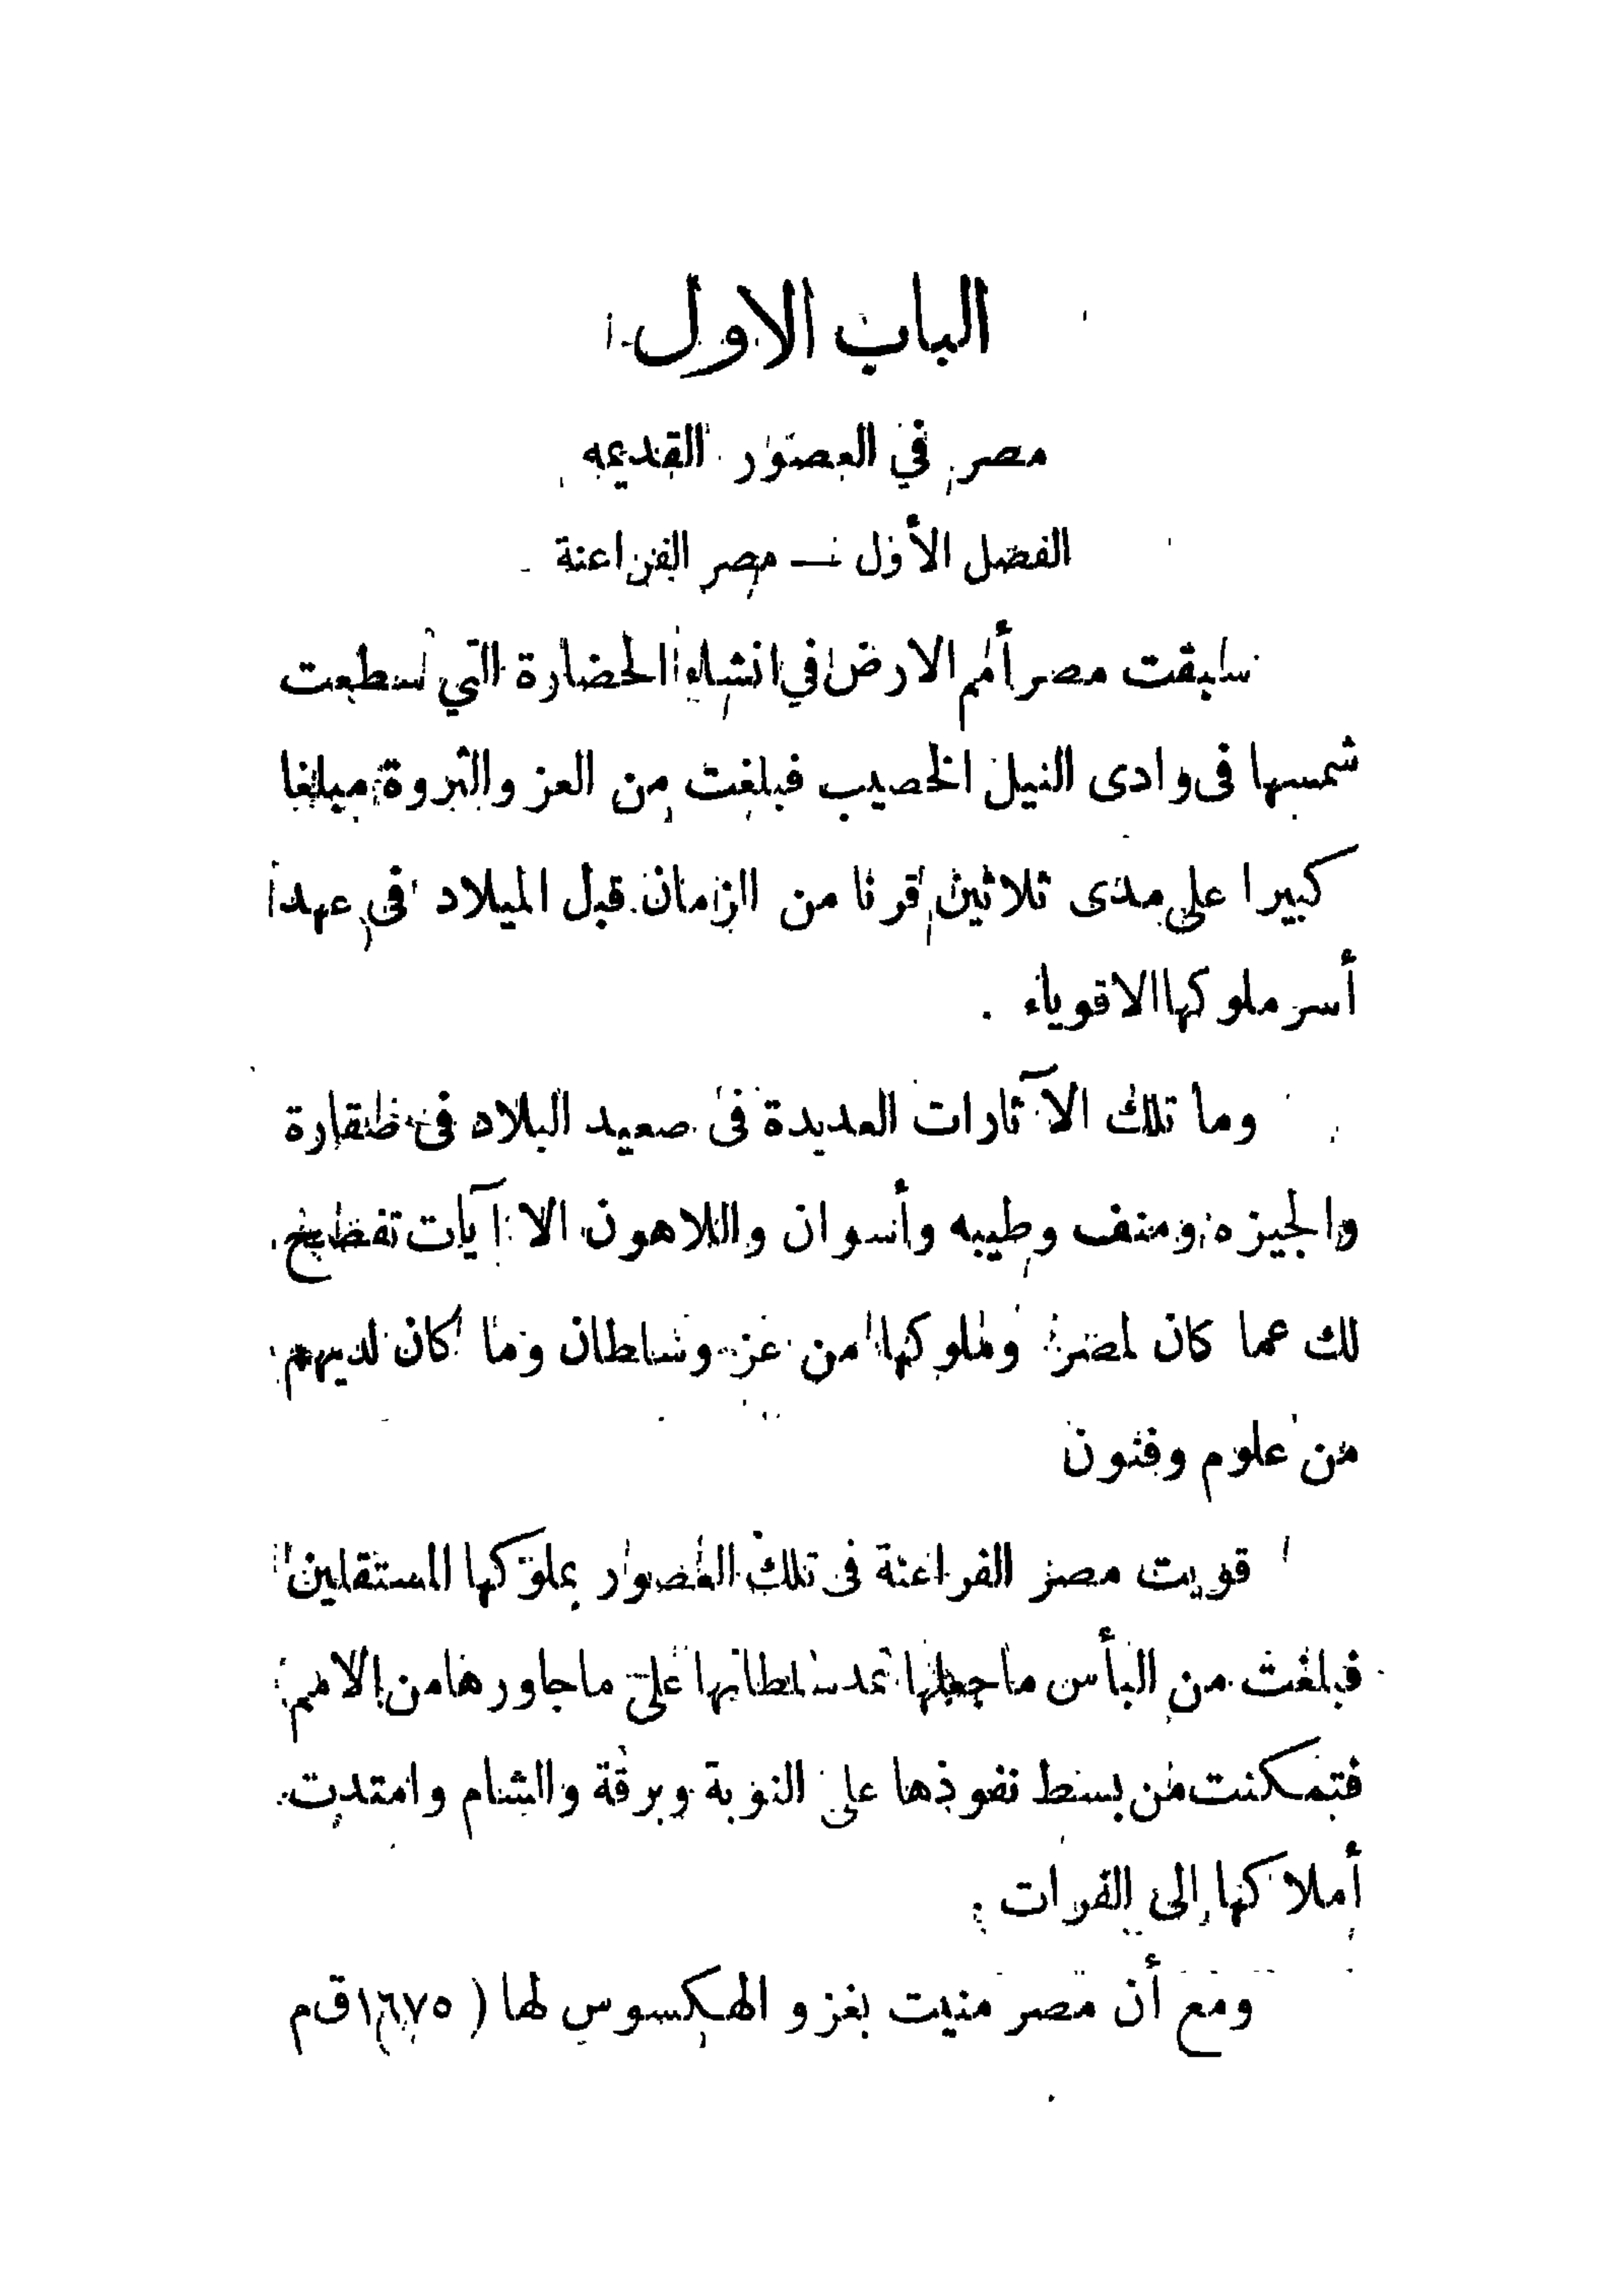 الباب الاول
مصر في العصور القديمه
الفصل الأول — مصر الفراعنة
سبقت مصر أمم الارض في انشاء الحضارة التي سطعت
شمسها فى وادى النيل الخصيب فبلغت من العز والثروة مبلغا
كبيرا على مدى ثلاثين قرنا من الزمان قبل الميلاد فى عهد
أسر ملوكها الاقوياء .
وما تلك الآثارات العديدة فى صعيد البلاد فى سقارة
والجيزه ومنف وطيبه وأسوان واللاهون الا آيات تفصح
لك عما كان لمصر وملوكها من عز وسلطان وما كان لديهم
من علوم وفنون
قويت مصر الفراعنة فى تلك العصور بملوكها المستقلين
فبلغت من البأس ما جعلها تمد سلطانها على ما جاورها من الامم
فتمكنت من بسط نفوذها على النوبة وبرقة والشام وامتدت
أملاكها إلى الفرات .
ومع أن مصر منيت بغزو الهكسوس لها ( ١٦٧٥ ق م